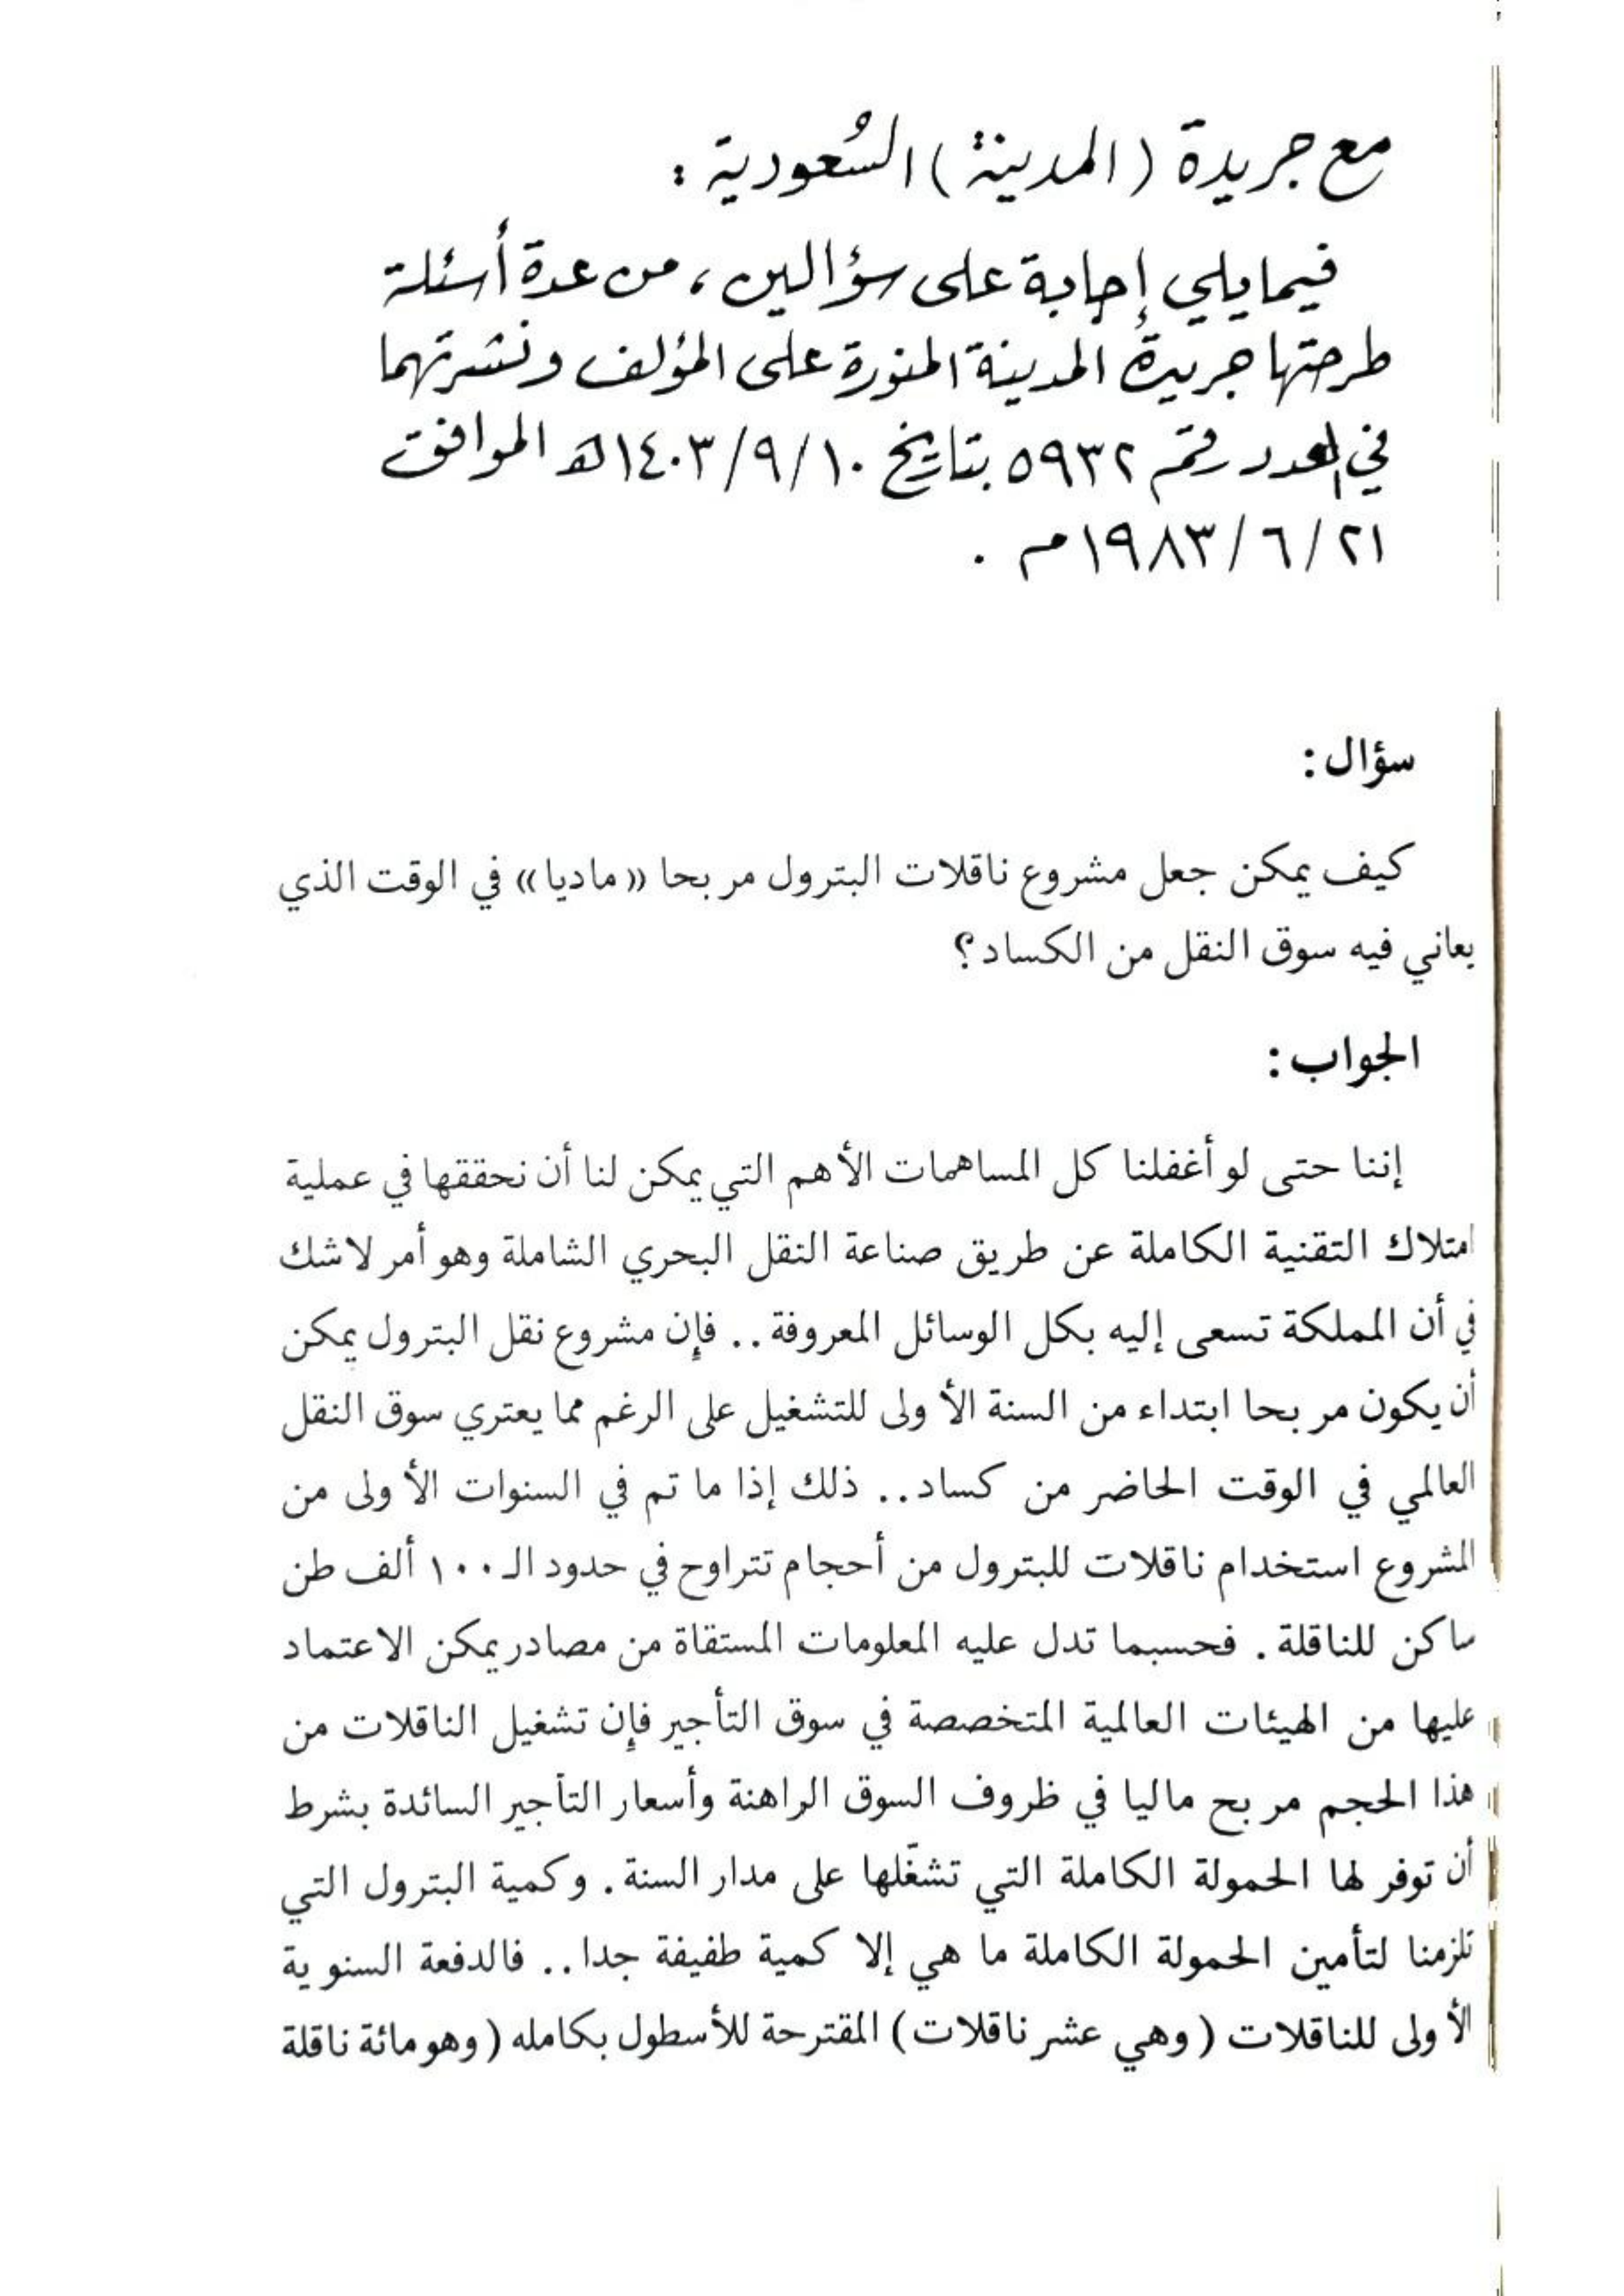 مع جريدة (المدينة) السُعودية :
فيما يلي إجابة على سؤالين ، من عدة أسئلة
طرحتها جريدة المدينة المنورة على المؤلف ونشرتهما
في العدد رقم ٥٩٣٢ بتاريخ ١٤٠٣/٩/١٠هـ الموافق
١٩٨٣/٦/٢١م .
سؤال :
كيف يمكن جعل مشروع ناقلات البترول مربحا «ماديا» في الوقت الذي
يعاني فيه سوق النقل من الكساد؟
الجواب :
إننا حتى لو أغفلنا كل المساهمات الأهم التي يمكن لنا أن نحققها في عملية
امتلاك التقنية الكاملة عن طريق صناعة النقل البحري الشاملة وهو أمر لاشك
في أن المملكة تسعى إليه بكل الوسائل المعروفة .. فإن مشروع نقل البترول يمكن
أن يكون مربحا ابتداء من السنة الأولى للتشغيل على الرغم مما يعتري سوق النقل
العالمي في الوقت الحاضر من كساد .. ذلك إذا ما تم في السنوات الأولى من
المشروع استخدام ناقلات للبترول من أحجام تتراوح في حدود الـ ١٠٠ ألف طن
ساكن للناقلة . فحسبما تدل عليه المعلومات المستقاة من مصادر يمكن الاعتماد
عليها من الهيئات العالمية المتخصصة في سوق التأجير فإن تشغيل الناقلات من
هذا الحجم مربح ماليا في ظروف السوق الراهنة وأسعار التأجير السائدة بشرط
أن توفر لها الحمولة الكاملة التي تشغّلها على مدار السنة . وكمية البترول التي
تلزمنا لتأمين الحمولة الكاملة ما هي إلا كمية طفيفة جدا .. فالدفعة السنوية
الأولى للناقلات (وهي عشر ناقلات) المقترحة للأسطول بكامله (وهو مائة ناقلة